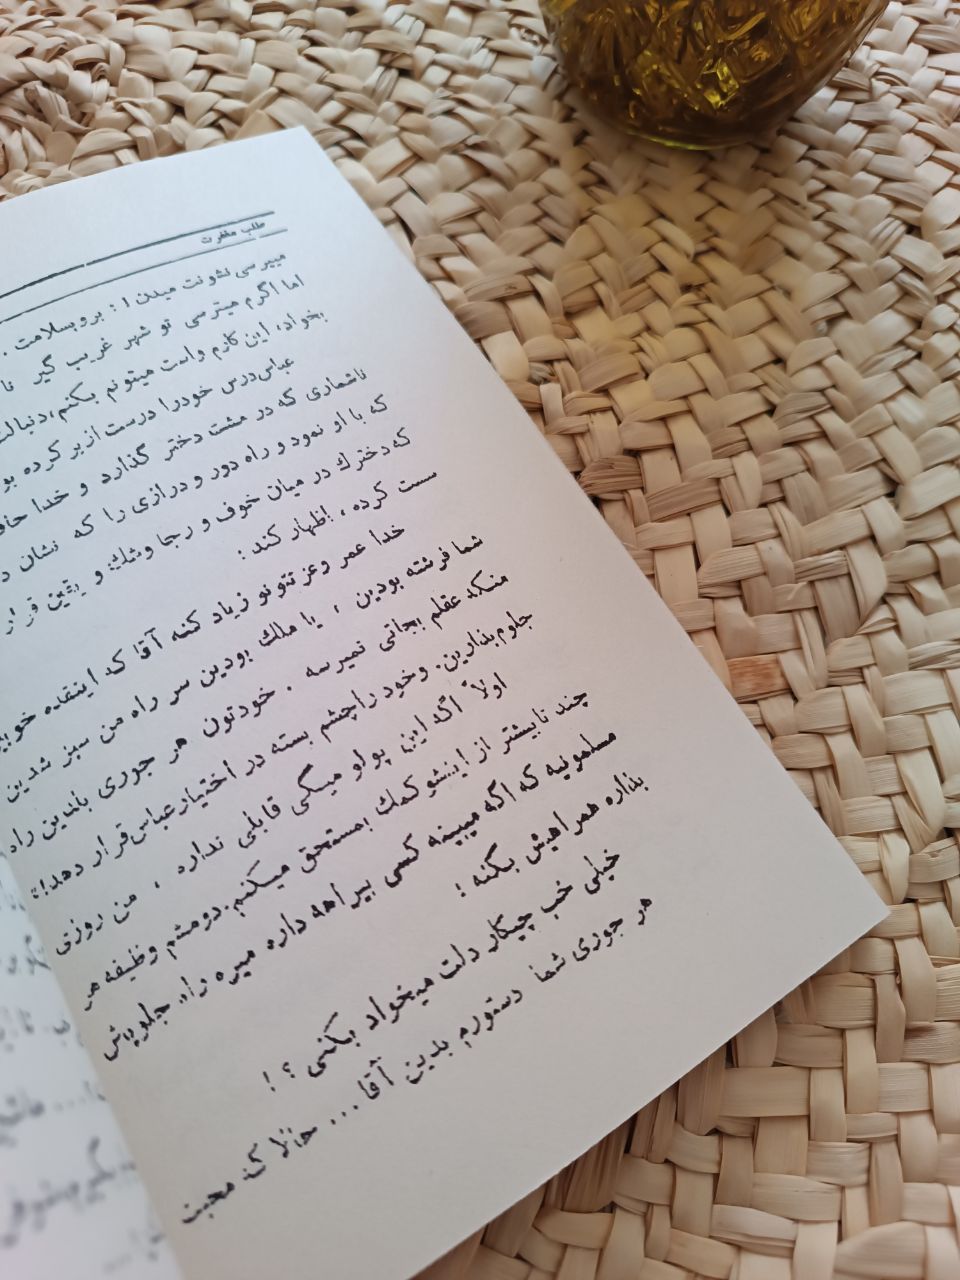 طلب مغفرت
میپرسی نشونت میدن ا : بروبسلامت .
اما اگرم میترسی تو شهر غریب گیر نا
بخواد، این کارم واست میتونم بکنم، دنبالت
عباس درس خودرا درست از بر کرده بو
ناشماری که در مشت دختر گذارد و خدا حاف
که با او نمود و راه دور و درازی را که نشان د
که دخترك در میان خوف و رجا وشك و یقین قرار
ست کرده ، اظهار کند :
خدا عمر وعزتتونو زیاد کنه آقا که اینقده خوبی
شما فرشته بودین ، یا ملك بودین سر راه من سبز شدین
منکه عقلم بجائی نمیرسه . خودتون هر جوری بلدین راه
جلوم بذارین. وخود را چشم بسته در اختیار عباس قرار دهد!
اولاً اگه این پولو میگی قابلی ندارد ، من روزی
چند تا بیشتر از اینشو کمك بمستحق میکنم. دومشم وظیفه هر
مسلمونیه که اگه میبینه کسی بیراهه داره میره راه جلوپاش
بذاره همراهیش بکنه :
خیلی خب چیکار دلت میخواد بکنی ؟ !
هر جوری شما دستورم بدین آقا ... حالا که محبت